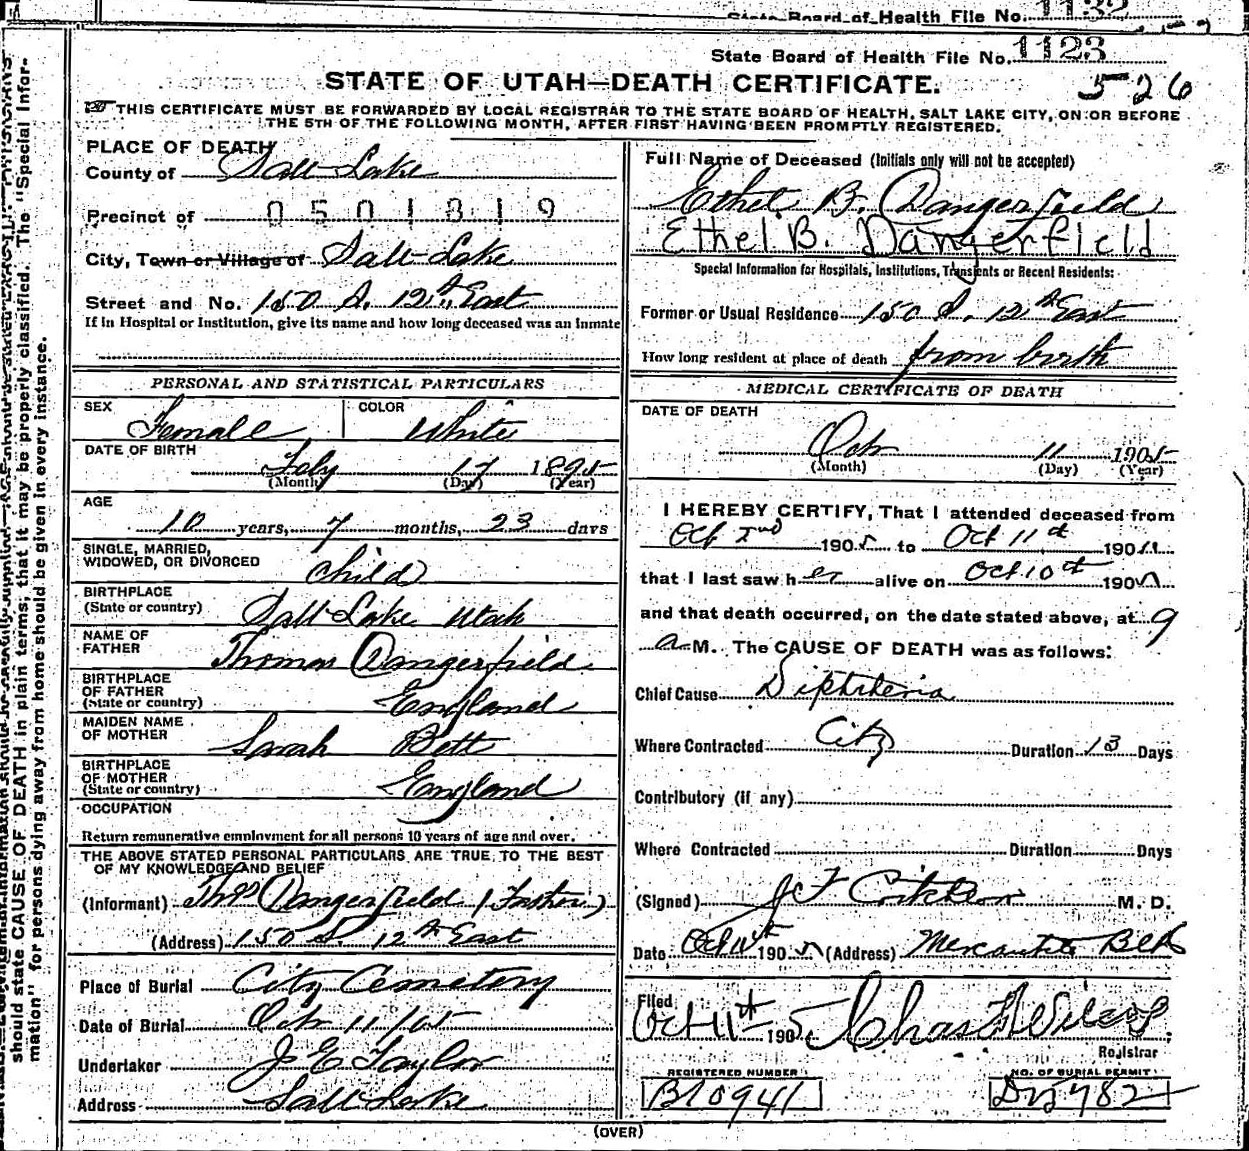 State Board of Health File No. 1132
State Board of Health File No. 1123
526
STATE OF UTAH—DEATH CERTIFICATE.
THIS CERTIFICATE MUST BE FORWARDED BY LOCAL REGISTRAR TO THE STATE BOARD OF HEALTH, SALT LAKE CITY, ON OR BEFORE
THE 5TH OF THE FOLLOWING MONTH, AFTER FIRST HAVING BEEN PROMPTLY REGISTERED.
PLACE OF DEATH
County of Salt Lake
Precinct of 0501819
City, Town or Village of Salt Lake
Street and No. 150 S. 12th East
If in Hospital or Institution, give its name and how long deceased was an inmate
PERSONAL AND STATISTICAL PARTICULARS
SEX Female COLOR White
DATE OF BIRTH
Feby 17 1895
(Month) (Day) (Year)
AGE
10 years, 7 months, 23 days
SINGLE, MARRIED,
WIDOWED, OR DIVORCED Child
BIRTHPLACE
(State or country) Salt Lake Utah
NAME OF
FATHER Thomas Dangerfield
BIRTHPLACE
OF FATHER
(State or country) England
MAIDEN NAME
OF MOTHER Sarah Bett
BIRTHPLACE
OF MOTHER
(State or country) England
OCCUPATION
Return remunerative employment for all persons 10 years of age and over.
THE ABOVE STATED PERSONAL PARTICULARS ARE TRUE TO THE BEST
OF MY KNOWLEDGE AND BELIEF
(Informant) Thos Dangerfield (Father)
(Address) 150 S. 12th East
Place of Burial City Cemetery
Date of Burial Oct 11/05
Undertaker J E Taylor
Address Salt Lake
Full Name of Deceased (Initials only will not be accepted)
Ethel B. Dangerfield
Ethel B. Dangerfield
Special Information for Hospitals, Institutions, Transients or Recent Residents:
Former or Usual Residence 150 S. 12th East
How long resident at place of death from birth
MEDICAL CERTIFICATE OF DEATH
DATE OF DEATH
Oct 11 1905
(Month) (Day) (Year)
I HEREBY CERTIFY, That I attended deceased from
Oct 2nd 1905 to Oct 11th 1905
that I last saw her alive on Oct 10th 1905
and that death occurred, on the date stated above, at 9
a M. The CAUSE OF DEATH was as follows:
Chief Cause Diphtheria
Where Contracted City Duration 13 Days
Contributory (if any)
Where Contracted Duration Days
(Signed) M. D.
Date Oct 11th 1905 (Address) Mercantile Blk
Filed
Oct 11th 1905 Chas Wilcox
Registrar
REGISTERED NUMBER NO. OF BURIAL PERMIT
B10941 D25782
(OVER)
should state CAUSE OF DEATH in plain terms, that it may be properly classified. The "Special Infor-
mation" for persons dying away from home should be given in every instance.